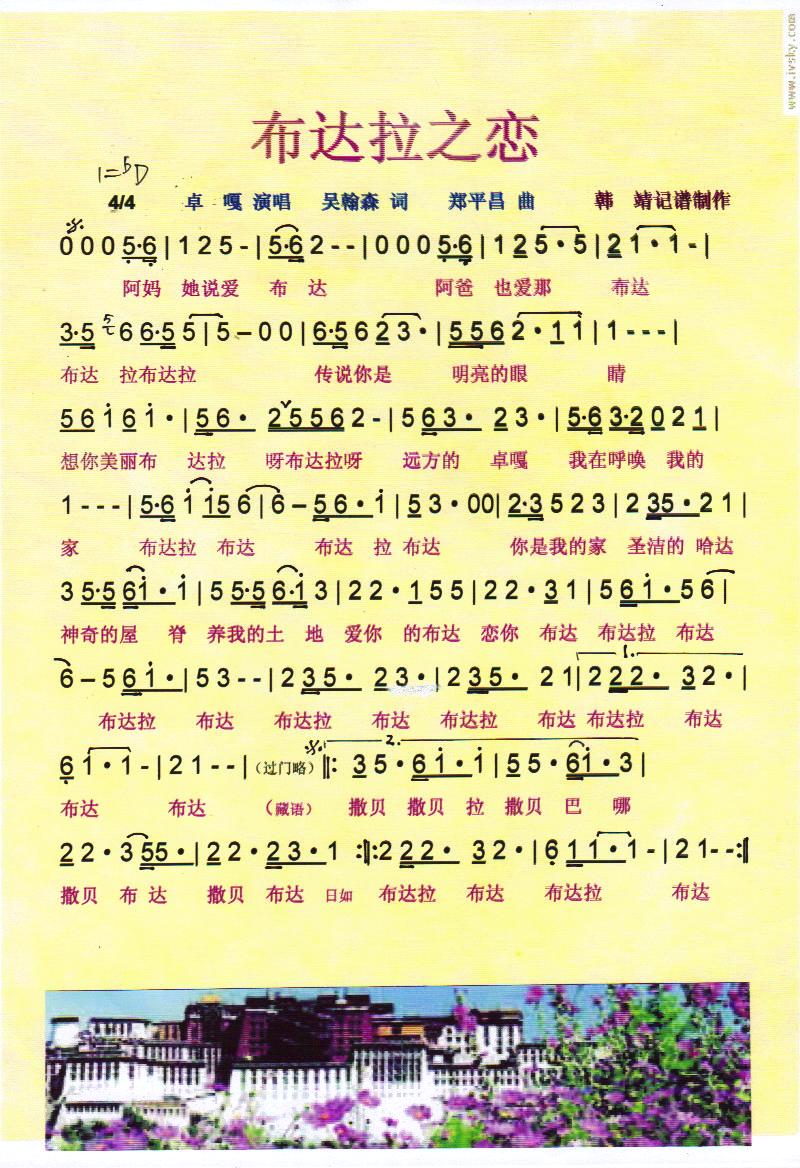 www.ivsky.com
布达拉之恋
1=♭D
4/4 卓 嘎 演唱 吴翰森 词 郑平昌 曲 韩 靖记谱制作
0 0 0 5·6 | 1 2 5 - | 5·6 2 - - | 0 0 0 5·6 | 1 2 5 · 5 | 2 1 · 1 - |
阿妈 她说爱 布 达 阿爸 也爱那 布达
3·5 6 6·5 5 | 5 – 0 0 | 6·5 6 2 3 · | 5 5 6 2 · 1 1 | 1 - - - |
布达 拉布达拉 传说你是 明亮的眼 睛
5 6 i 6 i · | 5 6 · 2 5 5 6 2 - | 5 6 3 · 2 3 · | 5·6 3·2 0 2 1 |
想你美丽布 达拉 呀布达拉呀 远方的 卓嘎 我在呼唤 我的
1 - - - | 5·6 i i5 6 | 6 – 5 6 · i | 5 3 · 0 0 | 2·3 5 2 3 | 2 3 5 · 2 1 |
家 布达拉 布达 布达 拉 布达 你是我的家 圣洁的 哈达
3 5·5 6 i · i | 5 5·5 6·i 3 | 2 2 · 1 5 5 | 2 2 · 3 1 | 5 6 i · 5 6 |
神奇的屋 脊 养我的土 地 爱你 的布达 恋你 布达 布达拉 布达
6 – 5 6 i · | 5 3 - - | 2 3 5 · 2 3 · | 2 3 5 · 2 1 | 1. 2 2 2 · 3 2 · |
布达拉 布达 布达拉 布达 布达拉 布达 布达拉 布达
6 1 · 1 - | 2 1 - - | （过门略） 2. ‖: 3 5 · 6 i · i | 5 5 · 6 i · 3 |
布达 布达 （藏语） 撒贝 撒贝 拉 撒贝 巴 哪
2 2 · 3 5 5 · | 2 2 · 2 3 · 1 :‖: 2 2 2 · 3 2 · | 6 1 1 · 1 - | 2 1 - - :‖
撒贝 布 达 撒贝 布达 日如 布达拉 布达 布达拉 布达